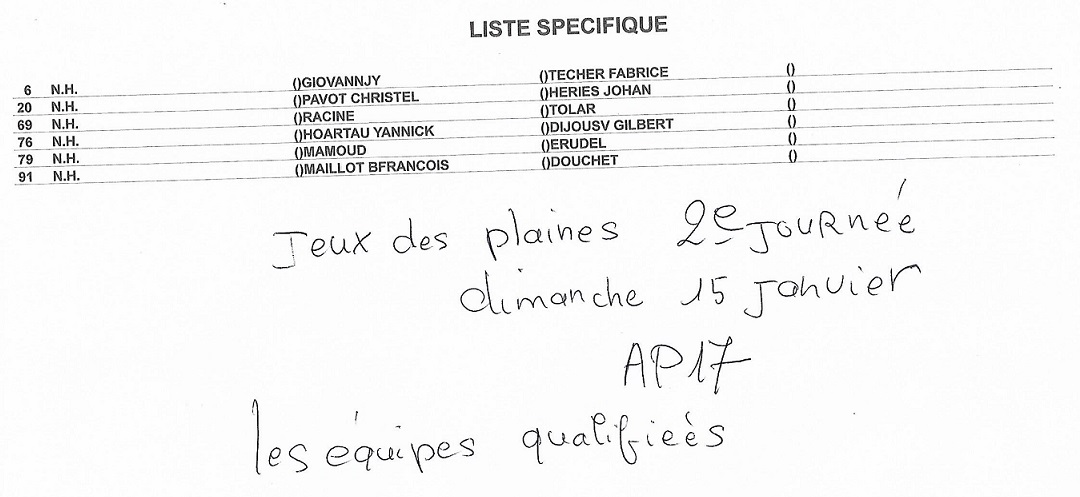 LISTE SPECIFIQUE
6 N.H. ()GIOVANNJY ()TECHER FABRICE ()
20 N.H. ()PAVOT CHRISTEL ()HERIES JOHAN ()
69 N.H. ()RACINE ()TOLAR ()
76 N.H. ()HOARTAU YANNICK ()DIJOUSV GILBERT ()
79 N.H. ()MAMOUD ()ERUDEL ()
91 N.H. ()MAILLOT BFRANCOIS ()DOUCHET ()
Jeux des plaines 2e Journéé
dimanche 15 Janvier
AP17
les équipes qualifieés